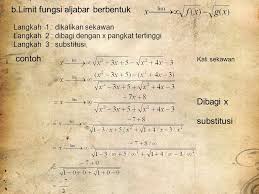 b.Limit fungsi aljabar berbentuk lim x→∞ √f(x) − √g(x)
Langkah 1 : dikalikan sekawan
Langkah 2 : dibagi dengan x pangkat tertinggi
Langkah 3 : substitusi,
contoh
= lim x→∞ √x² − 3x + 5 − √x² + 4x − 3
Kali sekawan
= lim x→∞ (x² − 3x + 5) − (x² + 4x − 3) / √x² − 3x + 5 + √x² + 4x − 3
= lim x→∞ −7x + 8 / √x² − 3x + 5 + √x² + 4x − 3
Dibagi x
= lim x→∞ −7 + 8 / x
substitusi
= −7 + 8 / ∞
= −7 + 0 / √1 − 0 + 0 + √1 + 0 − 0